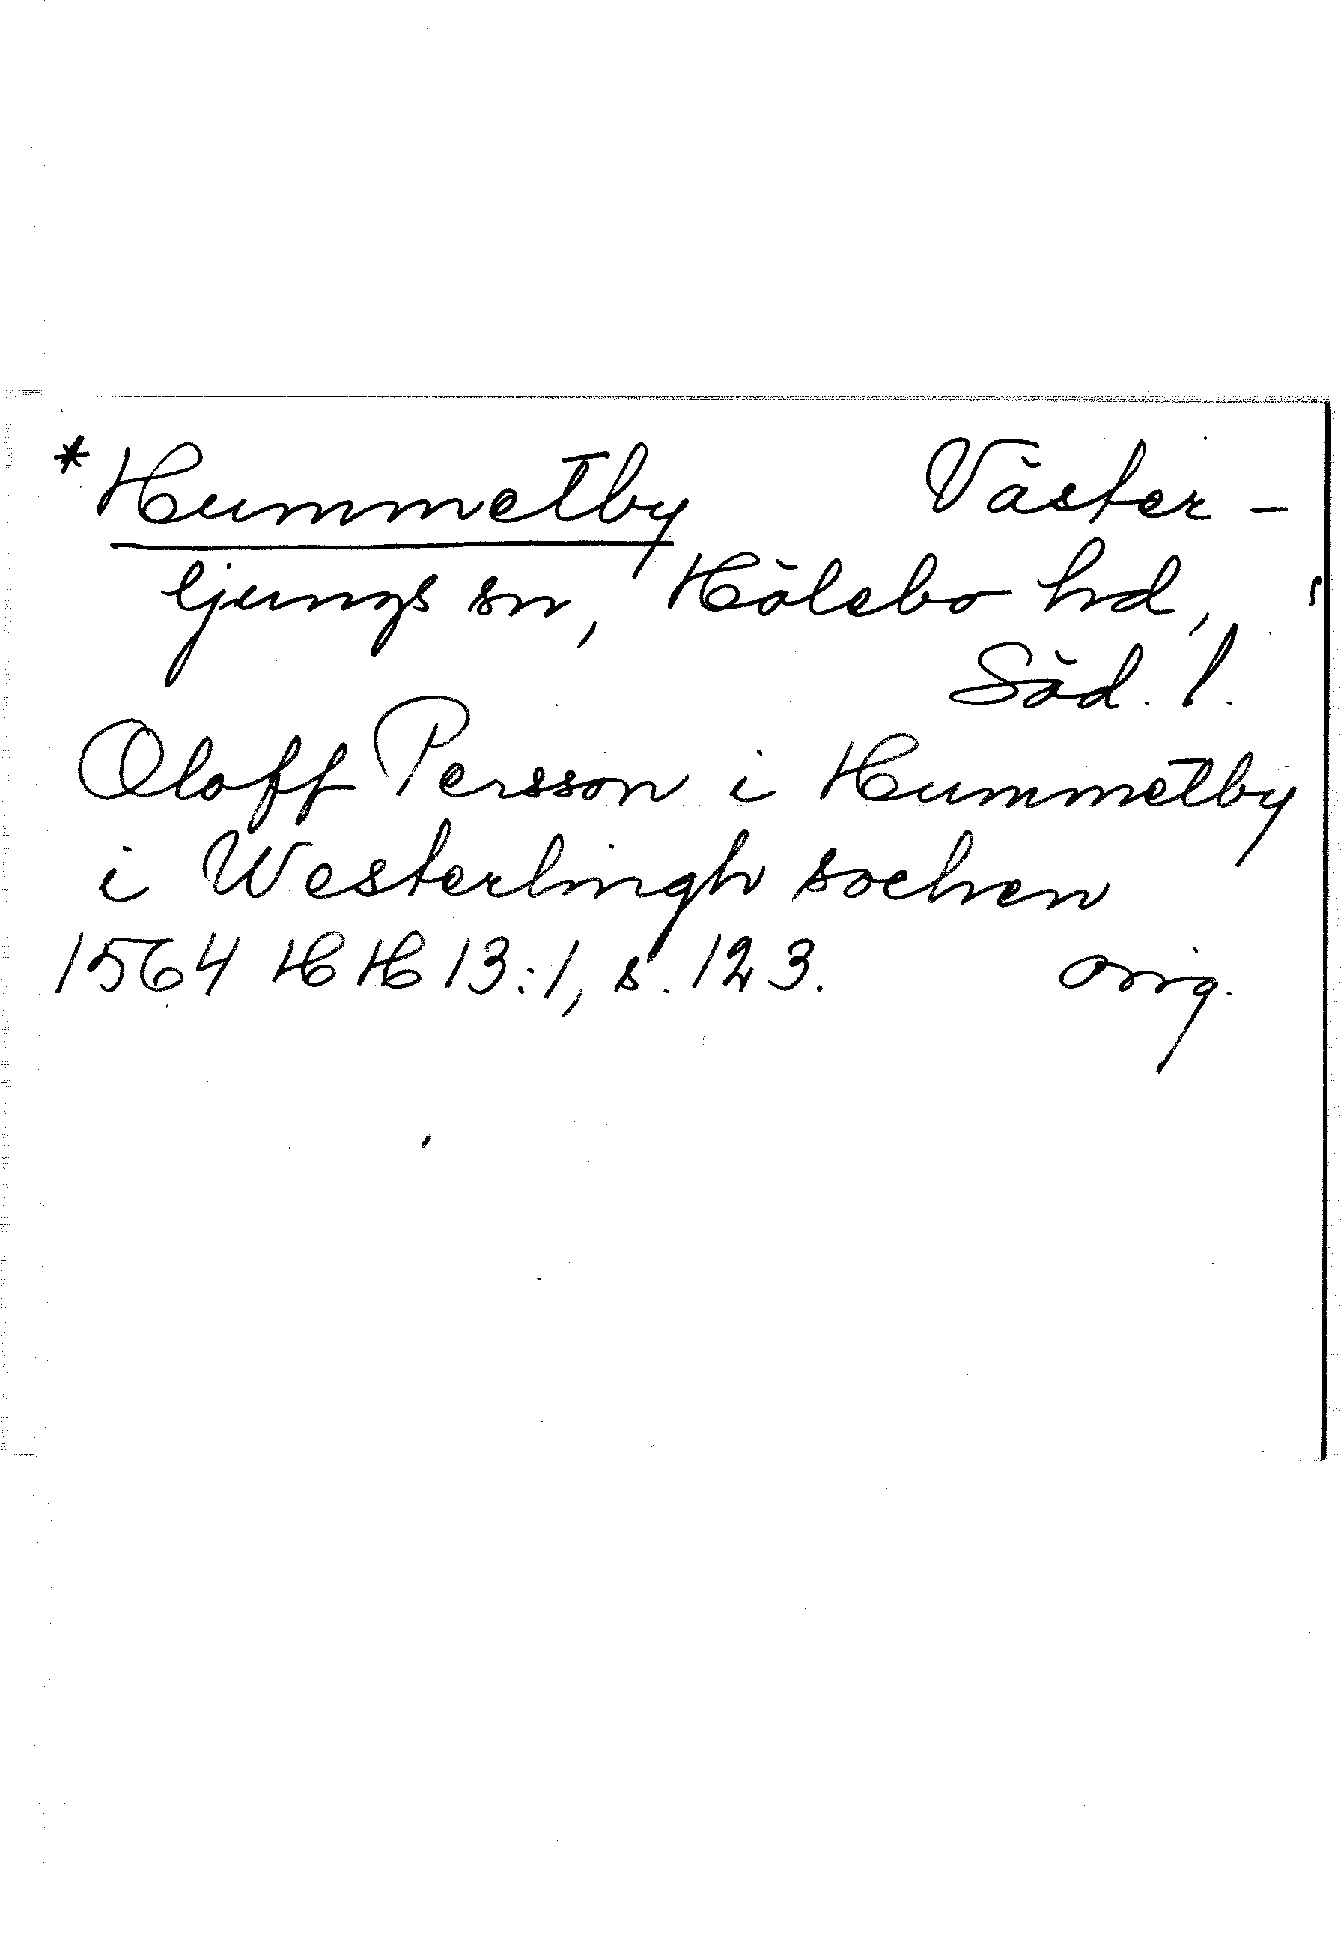 *Hummetby Väster-
ljungs sn, Hölebo hd,
Söd. l.
Oloff Persson i Hummetby
i Westerlingh sochen
1564 HH 13:1, s. 123. orig.